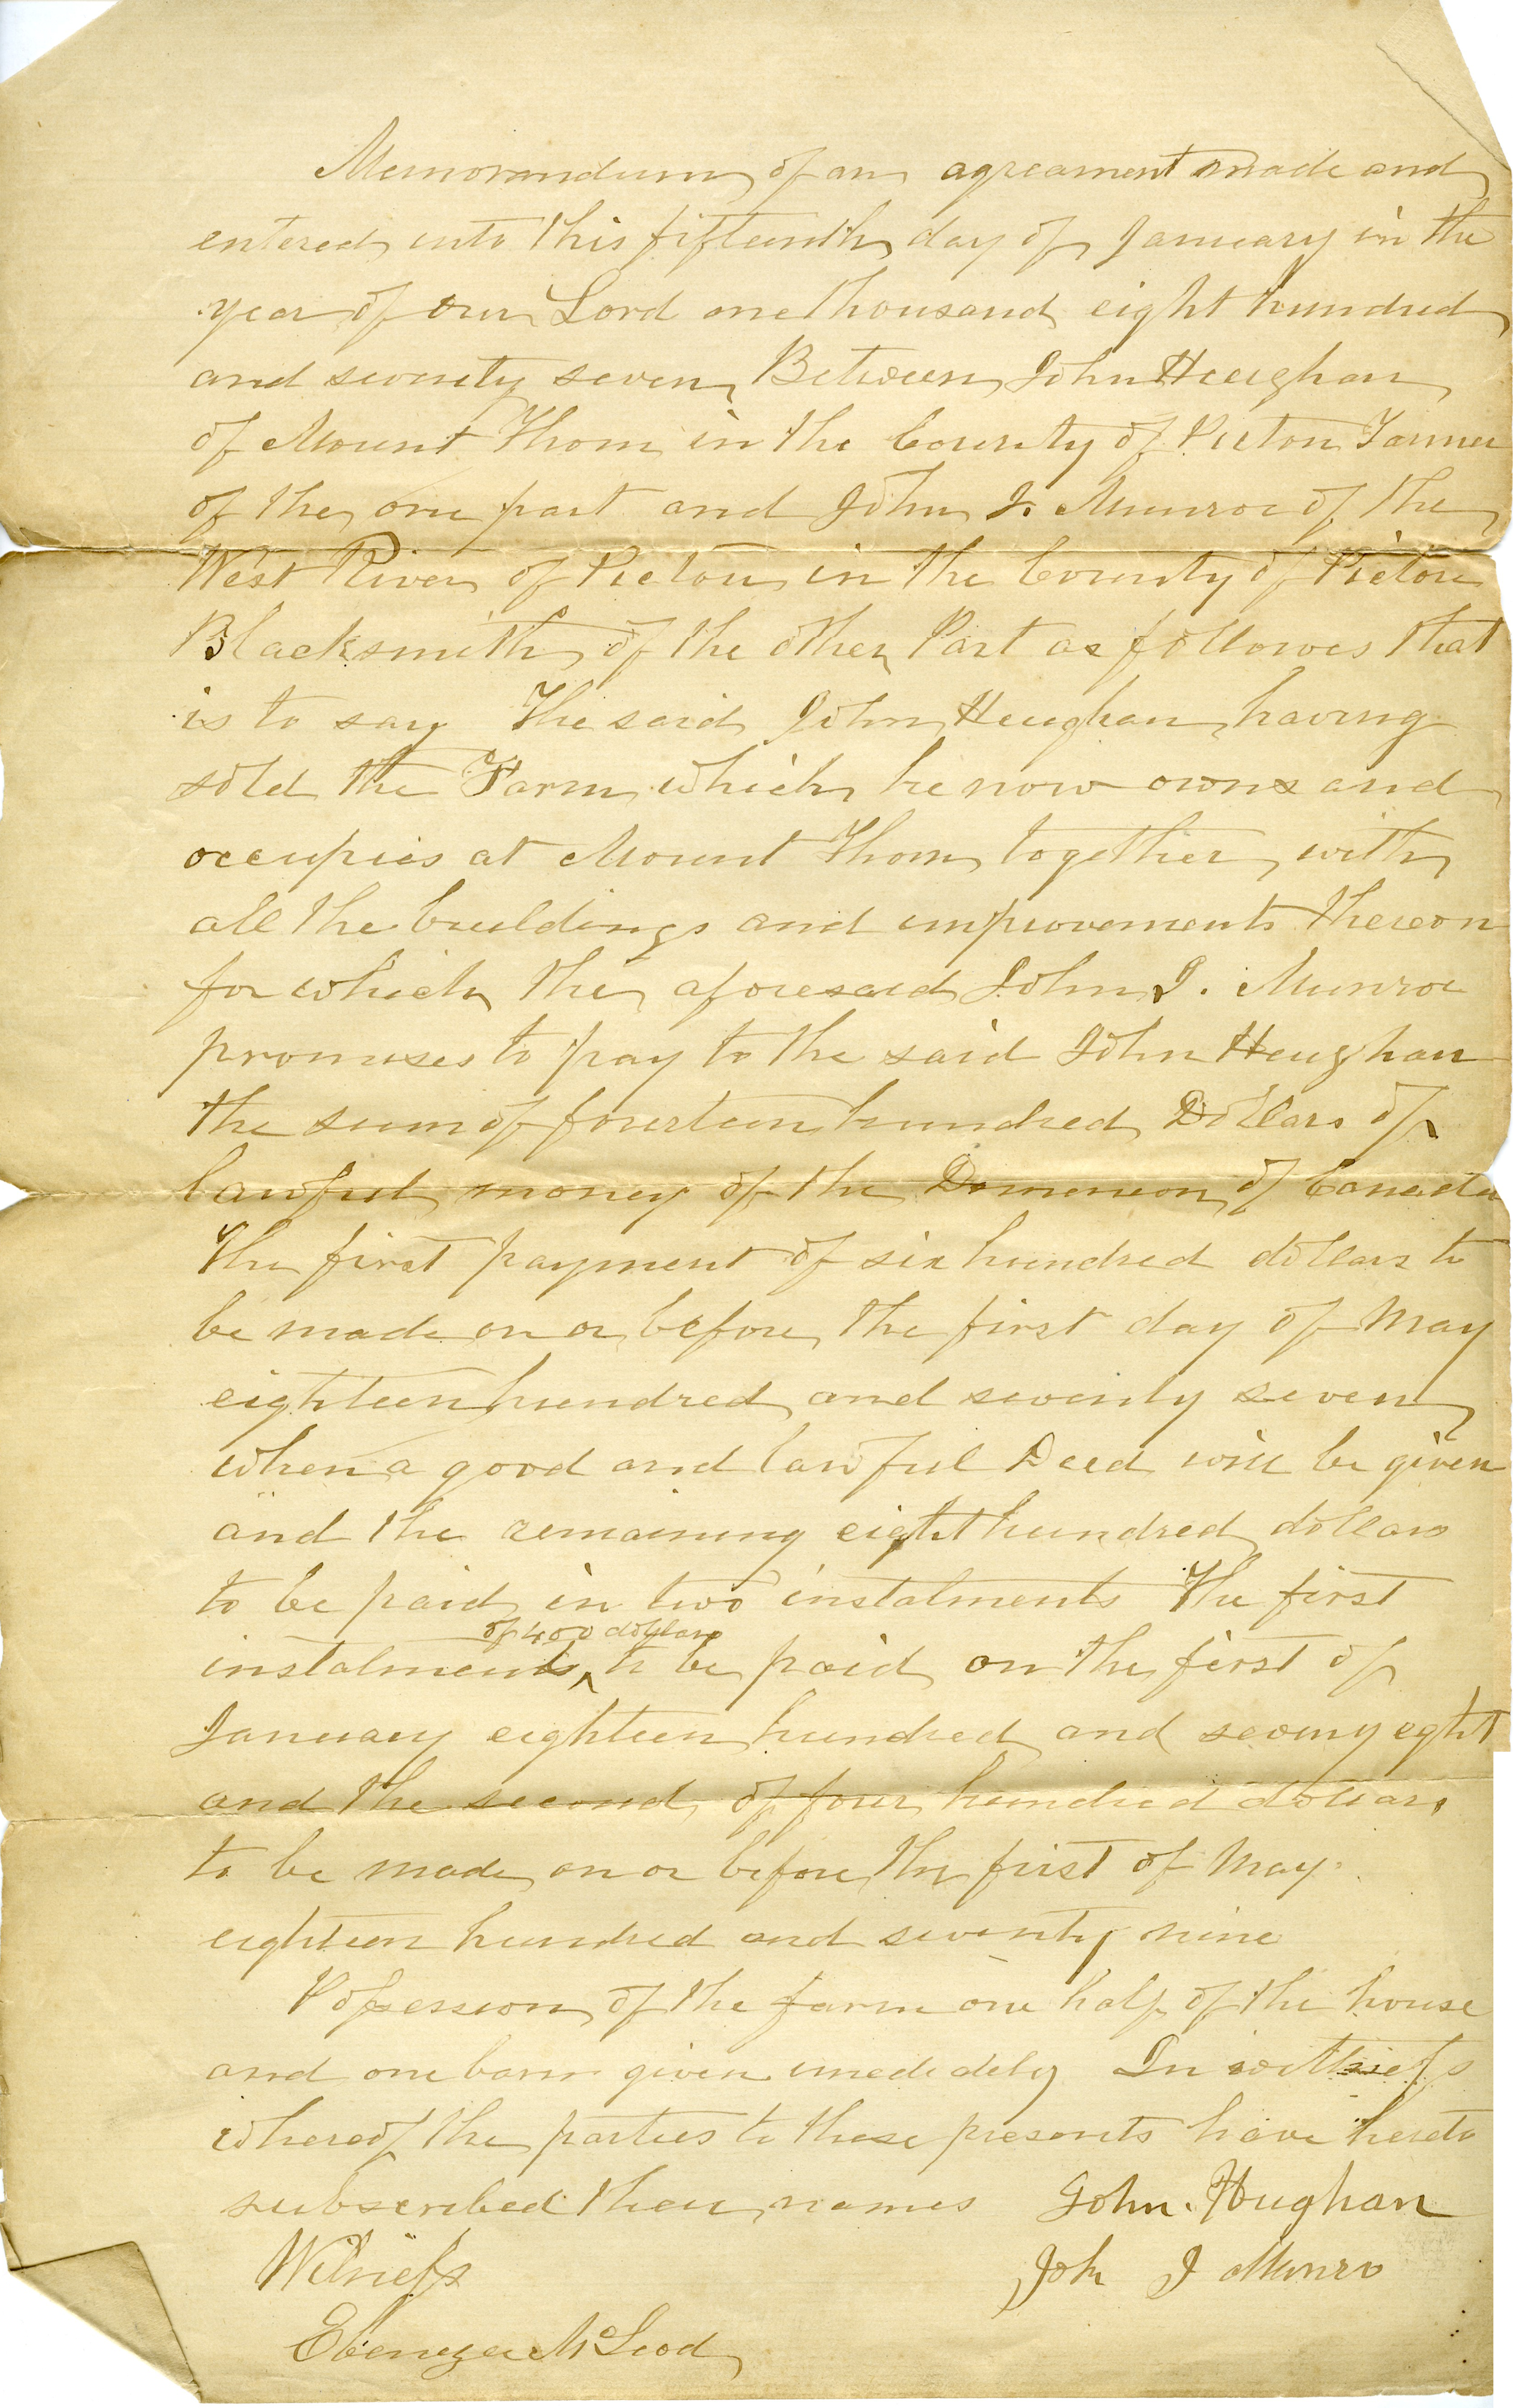 Memorandum of an agreament made and
entered into this fifteenth day of January in the
year of our Lord one thousand eight hundred
and seventy seven Between John Heughan
of Mount Thom in the County of Pictou Farmer
of the one part and John J. Munroe of the
West River of Pictou in the County of Pictou
Blacksmith of the other Part as followes that
is to say The said John Heughan having
sold the Farm which he now owns and
occupies at Mount Thom together with
all the buildings and improvements thereon
for which the aforesaid John J. Munroe
promises to pay to the said John Heughan
the sum of fourteen hundred Dollars of
lawful money of the Domenion of Canada
The first payment of six hundred dollars to
be made on or before the first day of May
eighteen hundred and seventy seven
when a good and lawful Deed will be given
and the remaining eight hundred dollars
to be paid in two instalments The first
of 400 dollars
instalment ‸ to be paid on the first of
January eighteen hundred and seveny eght
and the second of four hundred dollars
to be made on or before the first of May
eighteen hundred and seventy nine
Possession of the farm one half of the house
and one barn given imededely In witness
whereof the parties to these presents have hereto
subscribed their names John. Heughan
Witness John J Munro
Ebenezer McLeod